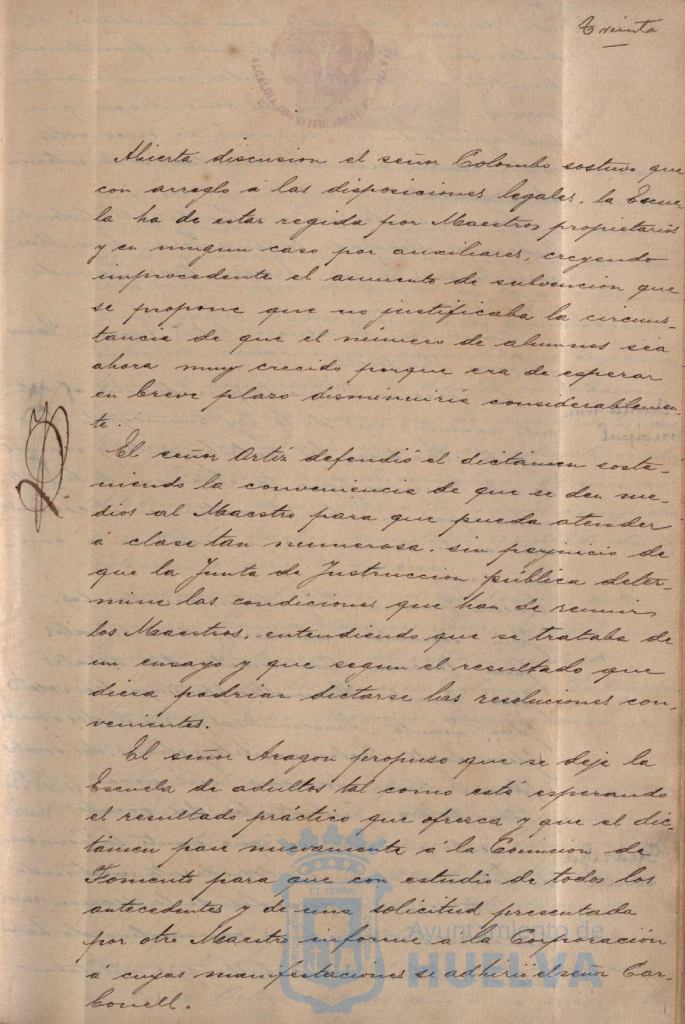 Treinta
Abierta discusion el señor Colombo sostuvo que
con arreglo á las disposiciones legales, la Escue-
la ha de estar regida por Maestros propietarios
y en ningun caso por auxiliares, creyendo
improcedente el aumento de subvencion que
se propone que no justificaba la circuns-
tancia de que el número de alumnos sea
ahora muy crecido porque era de esperar
en breve plazo disminuiria considerablemen-
te.
El señor Ortiz defendió el dictámen soste-
niendo la conveniencia de que se den me-
dios al Maestro para que pueda atender
á clase tan numerosa, sin perjuicio de
que la Junta de Instruccion pública deter-
mine las condiciones que han de reunir
los Maestros, entendiendo que se trataba de
un ensayo y que segun el resultado que
diera podrian dictarse las resoluciones con-
venientes.
El señor Aragon propuso que se deje la
Escuela de adultos tal como está esperando
el resultado práctico que ofrezca y que el dic-
támen pase nuevamente á la Comision de
Fomento para que con estudio de todos los
antecedentes y de una solicitud presentada
por otro Maestro informe á la Corporación
á cuyas manifestaciones se adhirió el señor Car-
bonell.
Ayuntamiento de
HUELVA